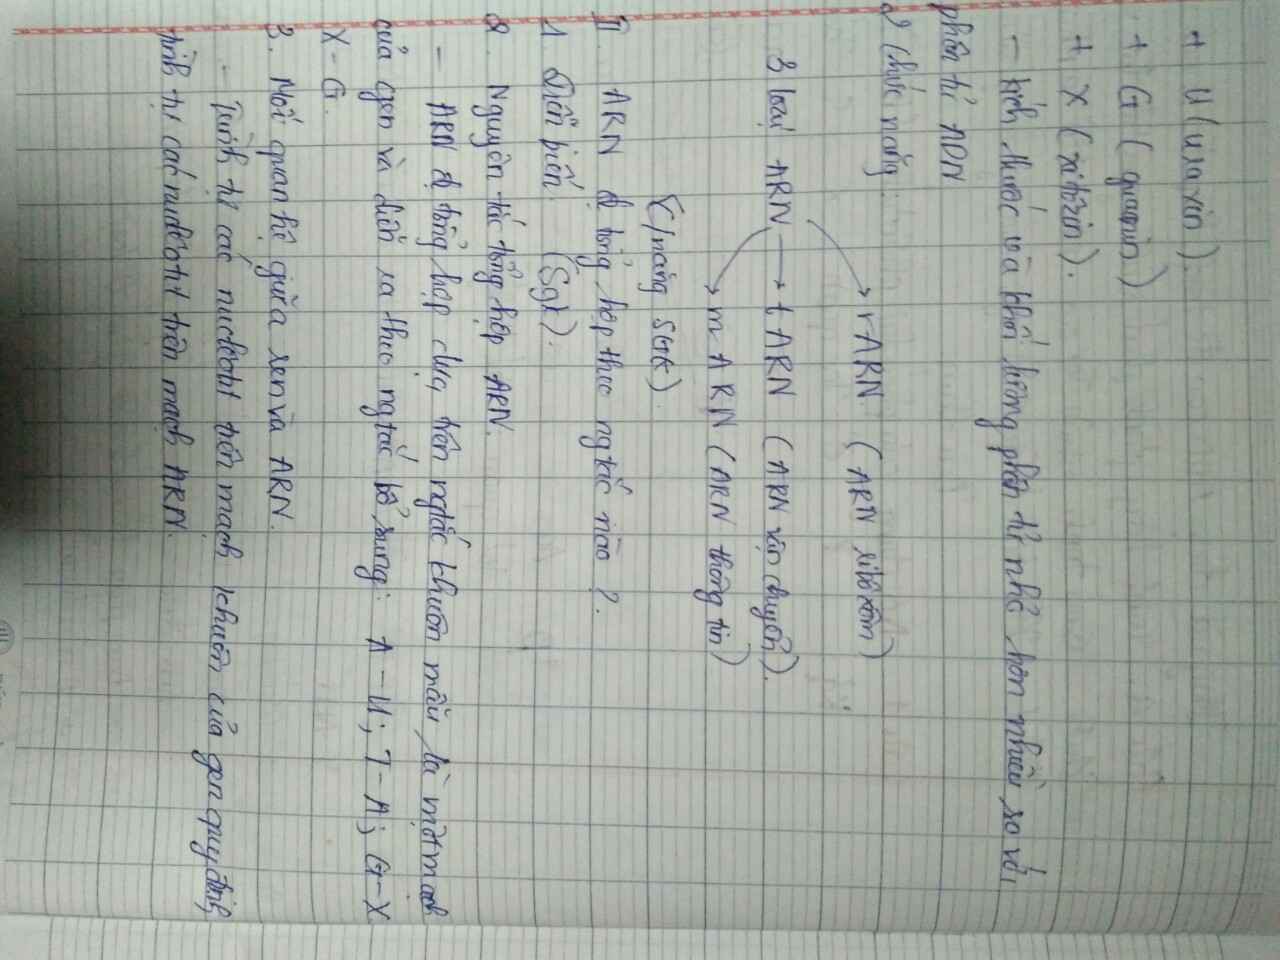 + U (uraxin).
+ G (guanin)
+ X (xitôzin).
- kích thước và khối lượng phân tử nhỏ hơn nhiều so với
phân tử ADN
2 Chức năng:
rARN (ARN ribôxôm)
3 loại ARN → tARN (ARN vận chuyển).
mARN (ARN thông tin)
(C/năng SGK).
II. ARN đc tổng hợp theo ngtắc nào ?.
1. Diễn biến. (Sgk).
2. Nguyên tắc tổng hợp ARN.
- ARN đc tổng hợp dựa trên ngtắc khuôn mẫu là một mạch
của gen và diễn ra theo ngtắc bổ sung: A - U; T - A; G - X
X - G.
3. Mối quan hệ giữa gen và ARN.
- Trình tự các nuclêôtit trên mạch khuôn của gen quy định
trình tự các nuclêôtit trên mạch ARN.